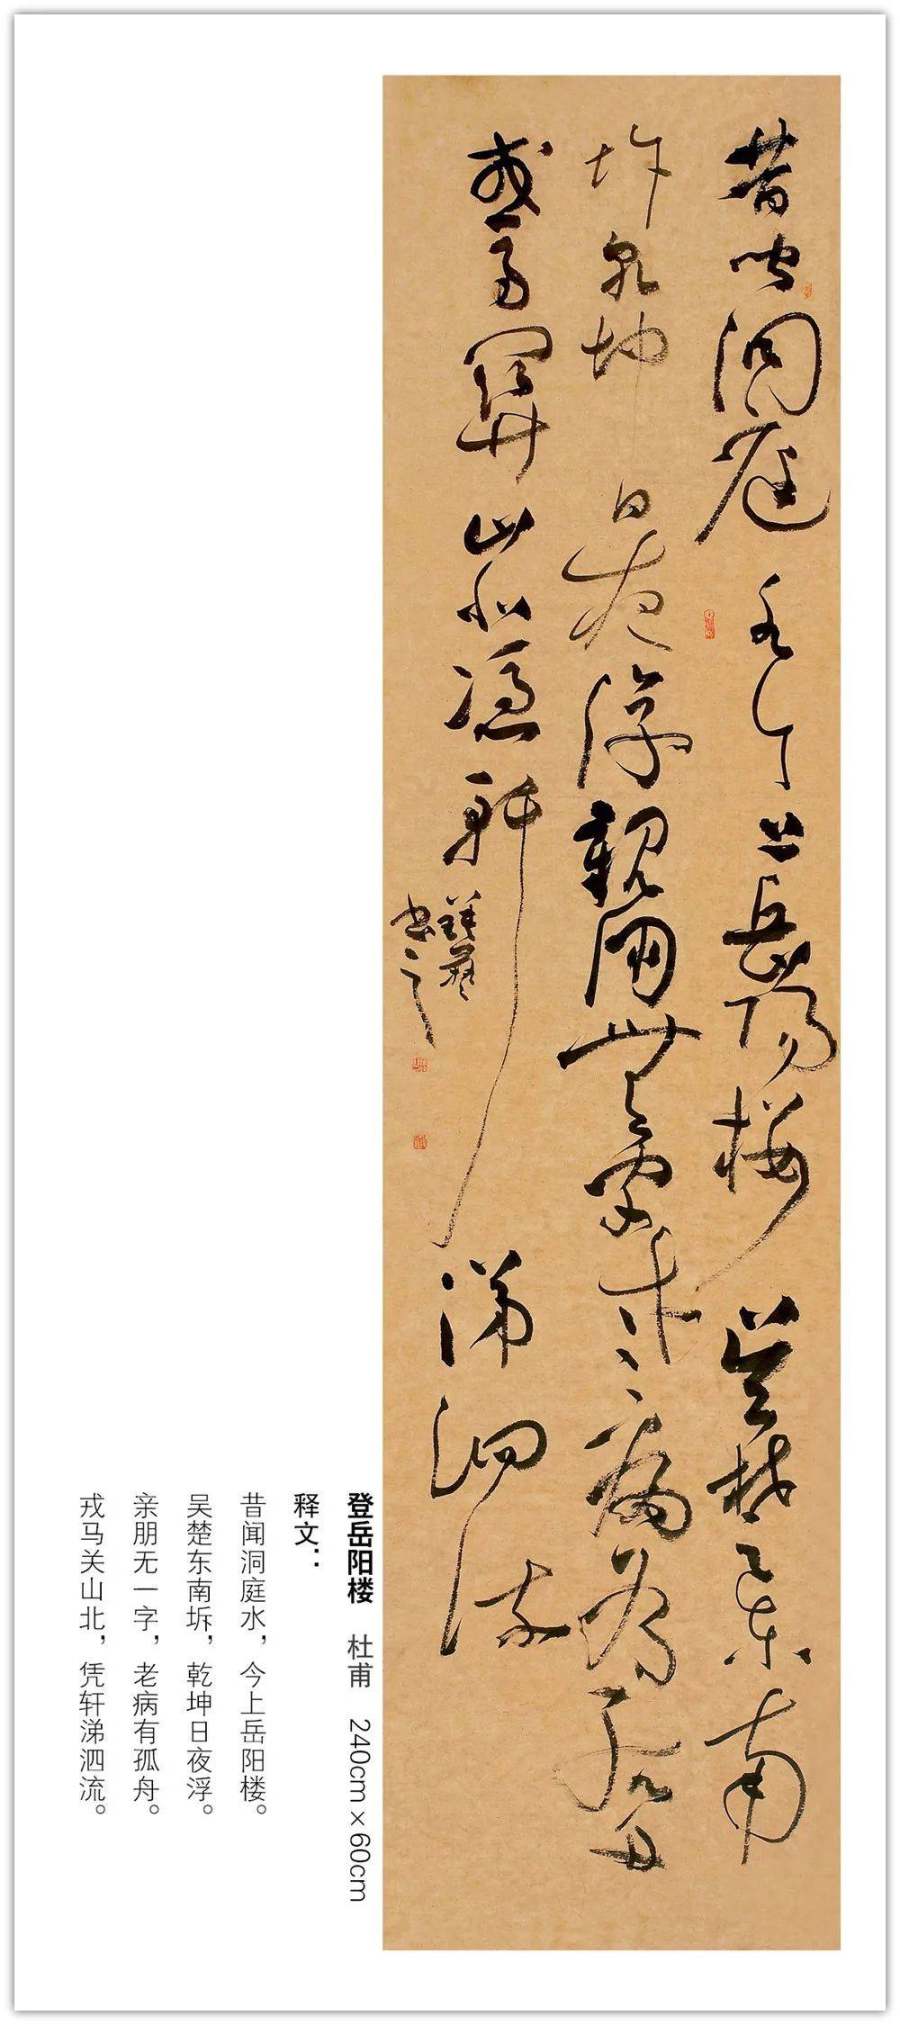 昔聞洞庭水今上岳陽樓吴楚東南
坼乾坤日夜浮親朋無一字老病有孤舟
戎馬關山北憑軒涕泗流
書
登岳阳楼 杜甫 240cm×60cm
释文：
昔闻洞庭水，今上岳阳楼。
吴楚东南坼，乾坤日夜浮。
亲朋无一字，老病有孤舟。
戎马关山北，凭轩涕泗流。